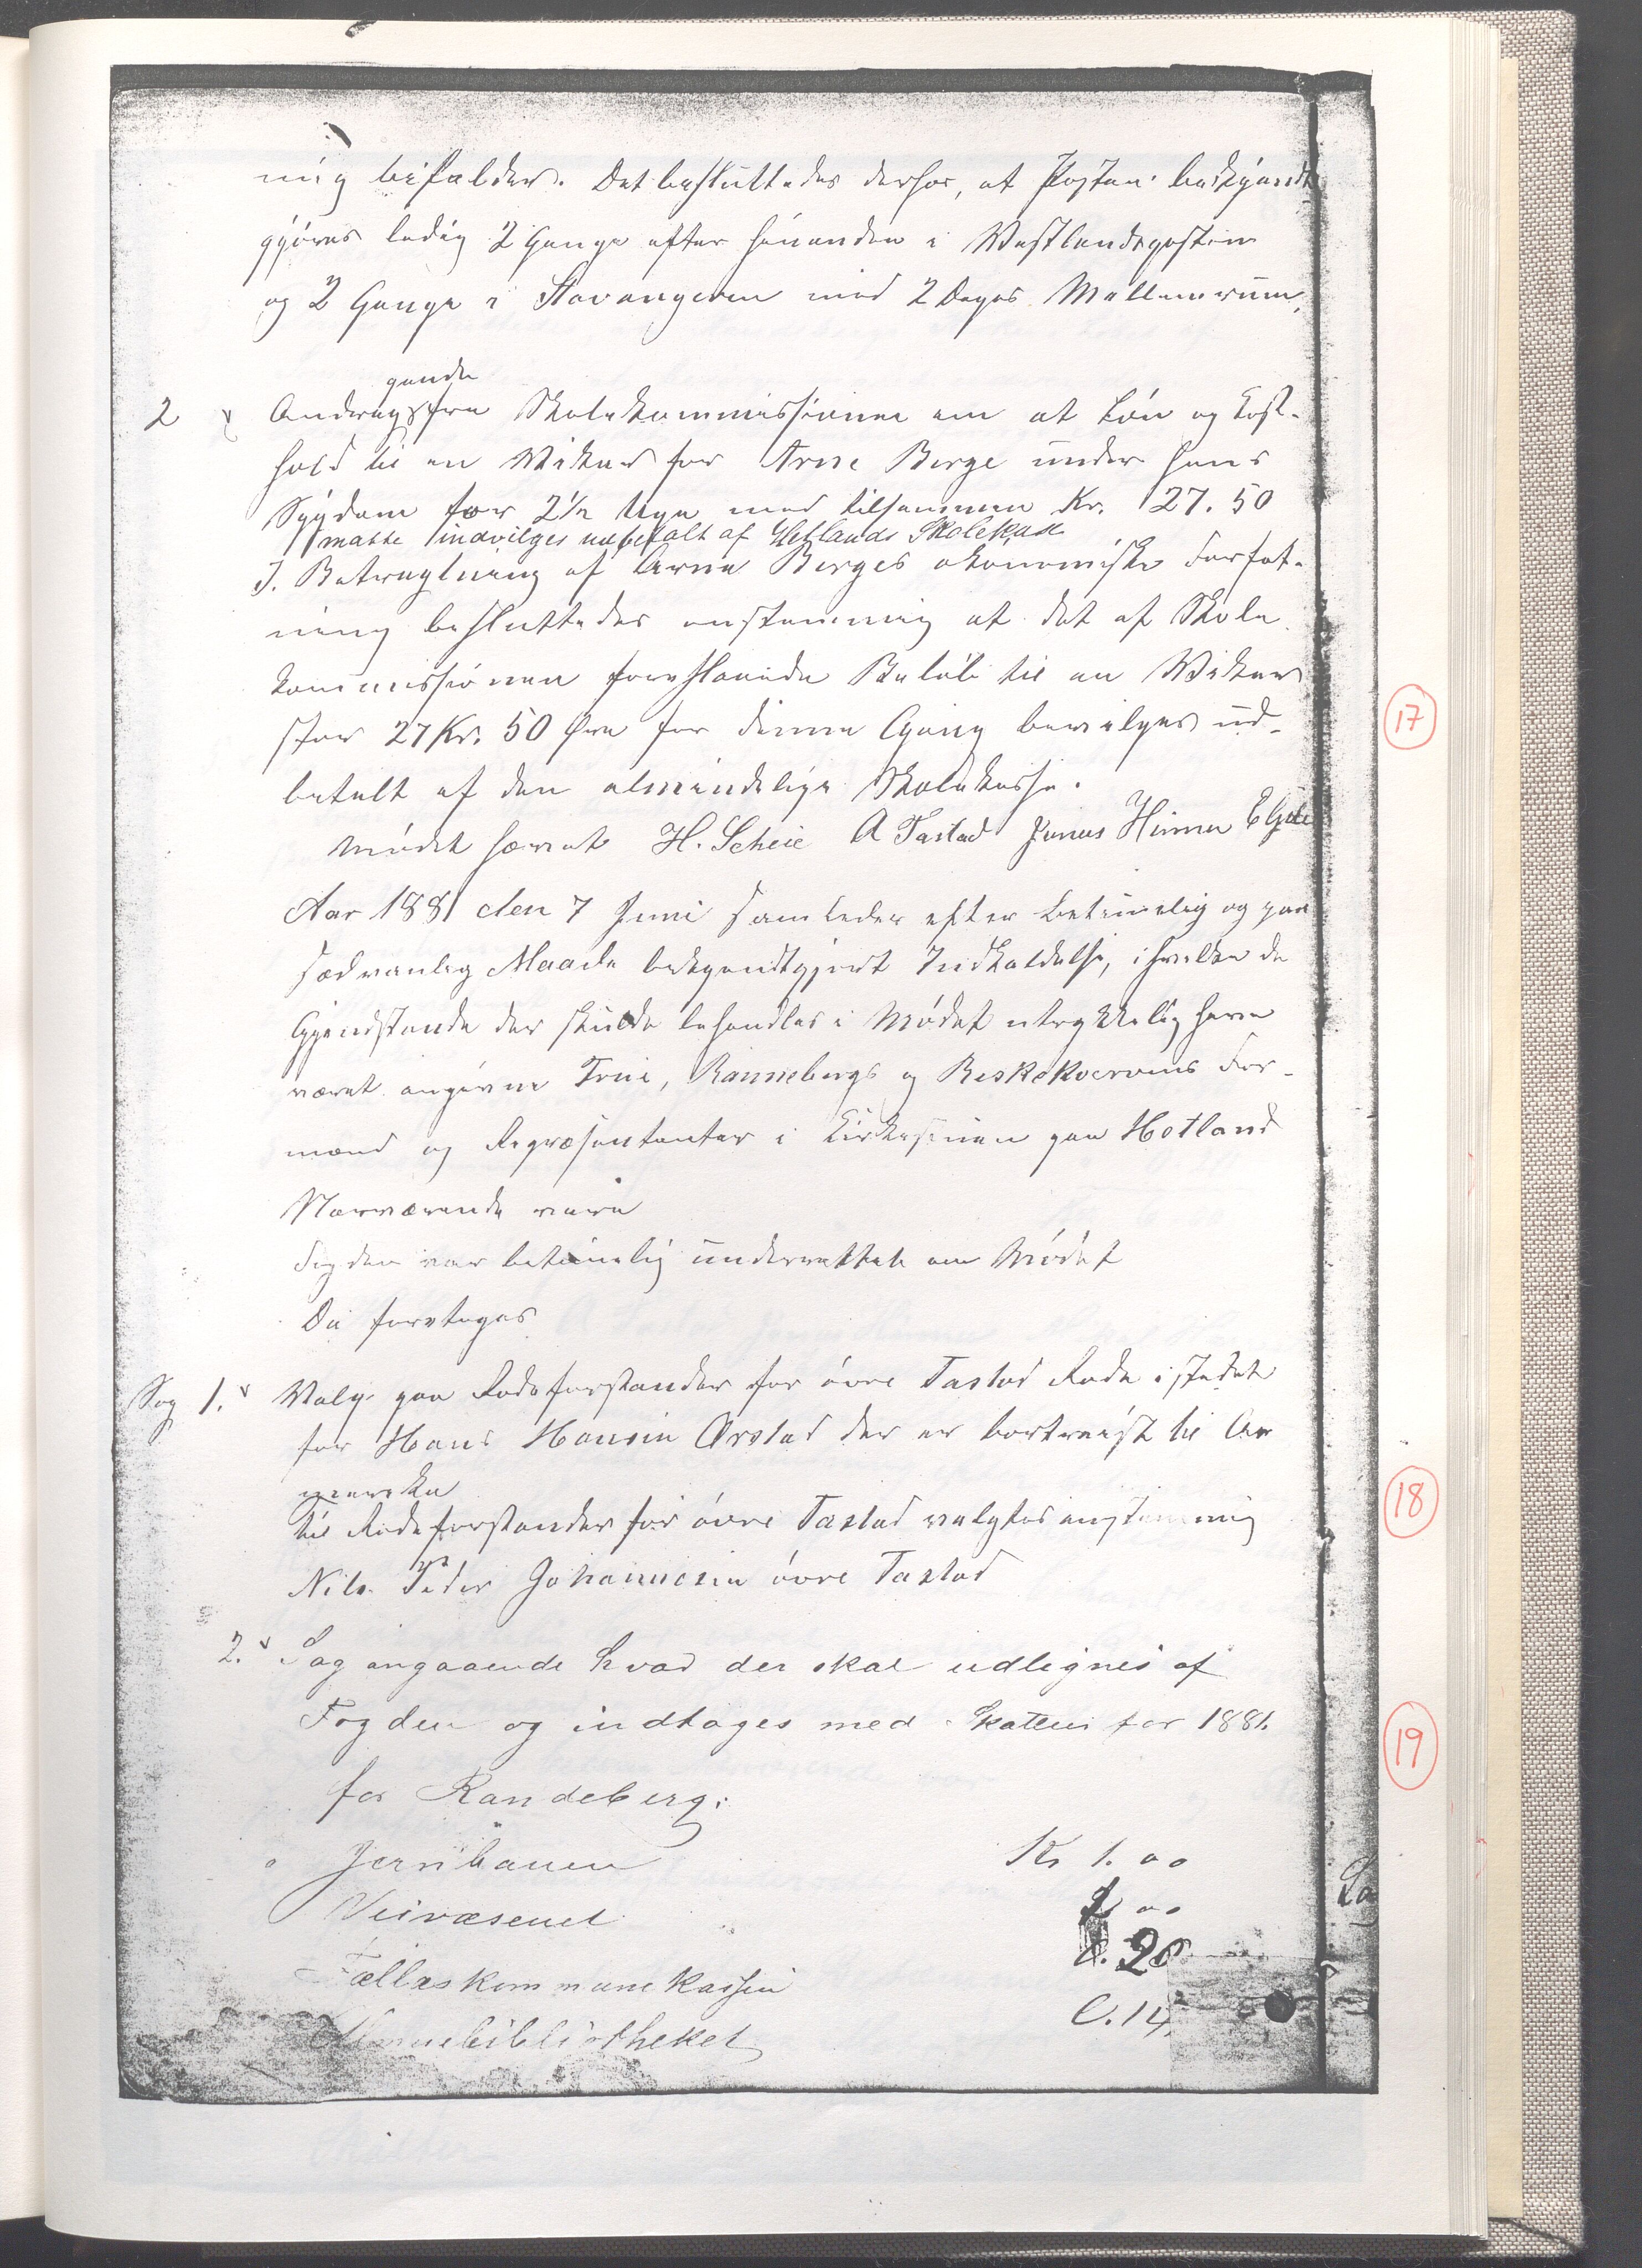 nig befalder. Det besluttedes derhos, at Posten bekjendt
gjøres ledig 2 Gange efter hinanden i Vestlandsposten
og 2 Gange i Stavangeren med 2 Dages Mellemrum.
gende
2 Andrag fra Skolekommissionen om at Løn og Kost-
hold til en Vikar for Arne Berge under hans
Sygdom for 2½ Uge med tilsammen Kr. 27.50
maatte indvilges udbetalt af Hetlands Skolekasse
I Betragtning af Arne Berges økonomiske Forfat-
ning besluttedes enstemmig at det af Skole
kommissionen foreslaaede Beløb til en Vikar
stor 27 Kr. 50 Øre for denne Gang bevilges ud-
betalt af den almindelige Skolekasse.
17
Mødet hævet H. Scheie A Tastad Jonas Hinna E Gjile
Aar 1881 den 7 Juni samledes efter betimelig og paa
sædvanlig Maade bekjendtgjort Indkaldelse, i hvilken de
Gjendstande der skulde behandles i Mødet utrykkelig have
været angivne Frue, Rannebergs og Beskekvervens For-
mænd og Repræsentanter i Kirkestuen paa Hetland
Nærværende vare
Fogden var betimelig underrettet om Mødet
Da foretoges
Sag 1. Valg paa Rodeforstander for øvre Tastad Rode i stedet
for Hans Hansen Ørstad der er bortreist til Am
merika
18
Til Rodeforstander for øvre Tastad valgtes enstemmig
Nils Peder Johannesen øvre Tastad
2. Sag angaaende hvad der skal udlignes af
Fogden og indtages med Skatten for 1881.
19
for Randeberg:
Jernbanen Kr 1.00
Veivæsenet
Fælleskommunekassen 0.20
0.14